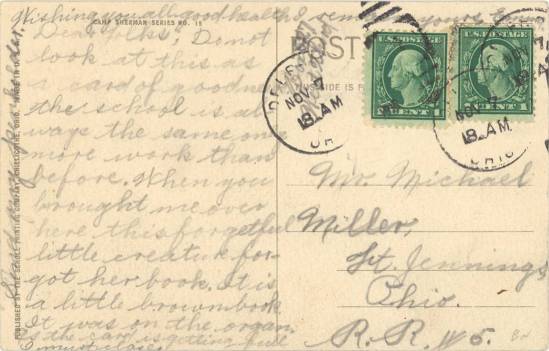 Wishing you all good health I remain yours
CAMP SHERMAN SERIES NO. 15
Dear folks; Do not
look at this as
a card of goodness
the school is al
ways the same one
more work than
before. When you
brought me over
here this forgetful
little creature for-
got her book. It is
a little brown book
It was on the organ.
As the card is getting full
I must close.
PUBLISHED BY THE SCIOTO PRINTING COMPANY, CHILLICOTHE, OHIO.
POST
SIDE IS F
NOV 7
8 AM
OH
U.S. POSTAGE
1 CENT 1
U.S. POSTAGE
1 CENT 1
NOV
8 AM
OHIO
Mr. Michael
Miller,
Ft. Jennings
Ohio
R. R. No 5.